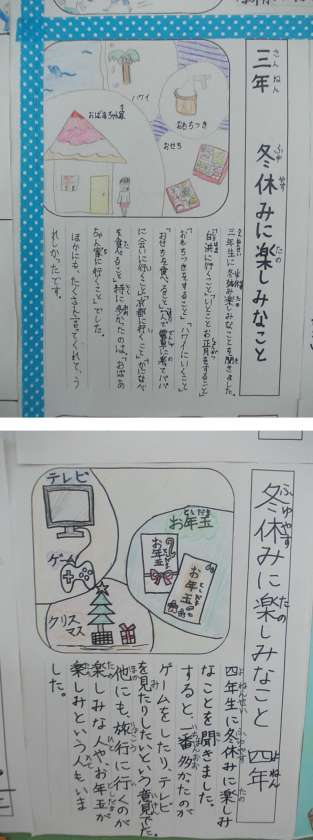 三年 冬休みに楽しみなこと
ハワイ
おもちつき
おばあちゃん家
おせち
三年生に冬休み楽しみなことを聞きました。
「白浜に行くこと」「いとことお正月をすること」
「おもちつきをすること」「ハワイにいくこと」
「おせちを食べること」 パパ
に会いに行くこと」「京都に行くこと」「かになべ
を食べること」特に多かったのは、「おばあ
ちゃん家に行くこと」でした。
ほかにも、たくさん言ってくれて、う
れしかったです。
冬休みに楽しみなこと 四年
テレビ
ゲーム
クリスマス
お年玉
お年玉
お年玉
四年生に冬休みに楽しみ
なことを聞きました。
すると、一番多かったのが
ゲームをしたり、テレビ
を見たりしたいという意見でした。
他にも、旅行に行くのが
楽しみな人や、お年玉が
楽しみという人もいま
した。